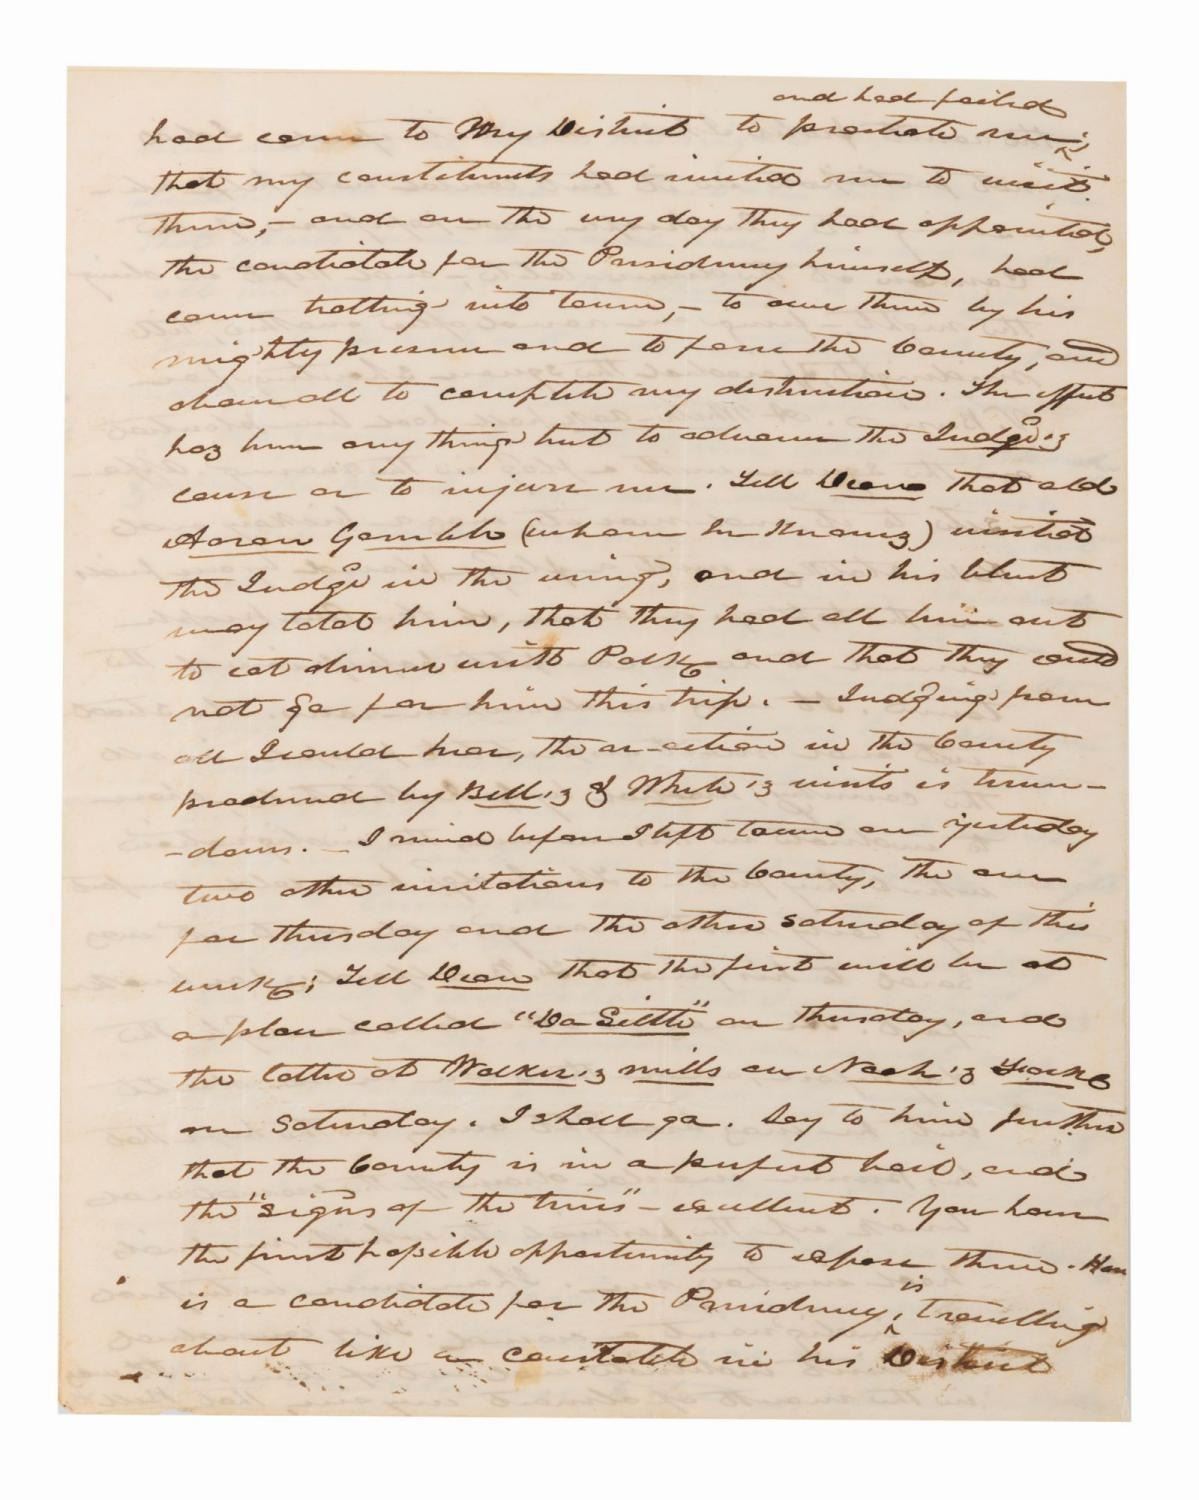 and had failed
had come to My District to prostrate me;
that my constituents had invited me to visit
them, – and on the very day they had appointed,
the candidate for the Presidency himself, had
come trotting into town, – to awe them by his
mighty presence and to force the County, and
above all to complete my distruction. The effect
has been any thing but to advance the Judge's
cause or to injure me. Tell Dean that old
Aaron Gamble (whom he knows) visited
the Judge in the evening, and in his blunt
way told him, that they had all him out
to eat dinner with Polk and that they could
not go for him this trip. – Judging from
all I could hear, the re-action in the County
produced by Bell's & White's visits is tremen-
-dous. – I recd before I left town on yesterday
two other invitations to the County, the one
for thursday and the other saturday of this
week; Tell Dean that the first will be at
a place called "Da on thursday, and
the latter at Walker's mills on Nash's
on saturday. I shall go. Say to him further
that the County is in a perfect boil, and
the "signs of the times" – excellent. You have
the finest possible opportunity to expose them. Here
is a candidate for the Presidency, is travelling
about like a constable in his District